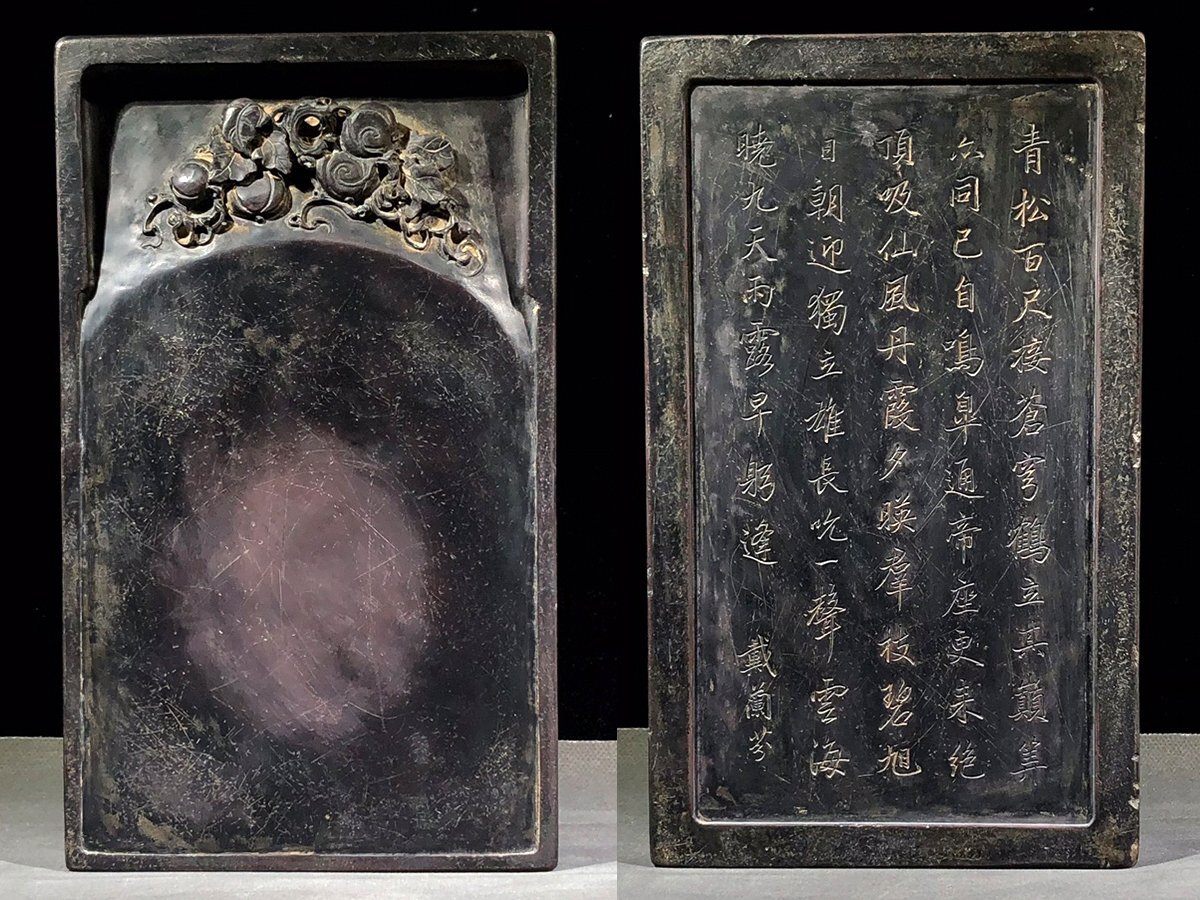 青松百尺接蒼穹鶴立其顛隼
亦同已自鳴皋通帝座更来絕
頂吸仙風丹霞夕暎羣枝碧旭
日朝迎獨立雄長吭一聲雲海
曉九天雨露早躬逢 戴蘭芬